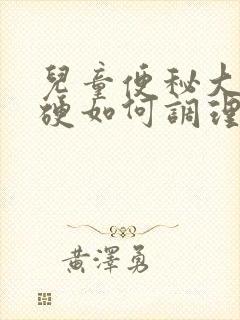 兒童便秘大
硬如何調理
黃澤勇